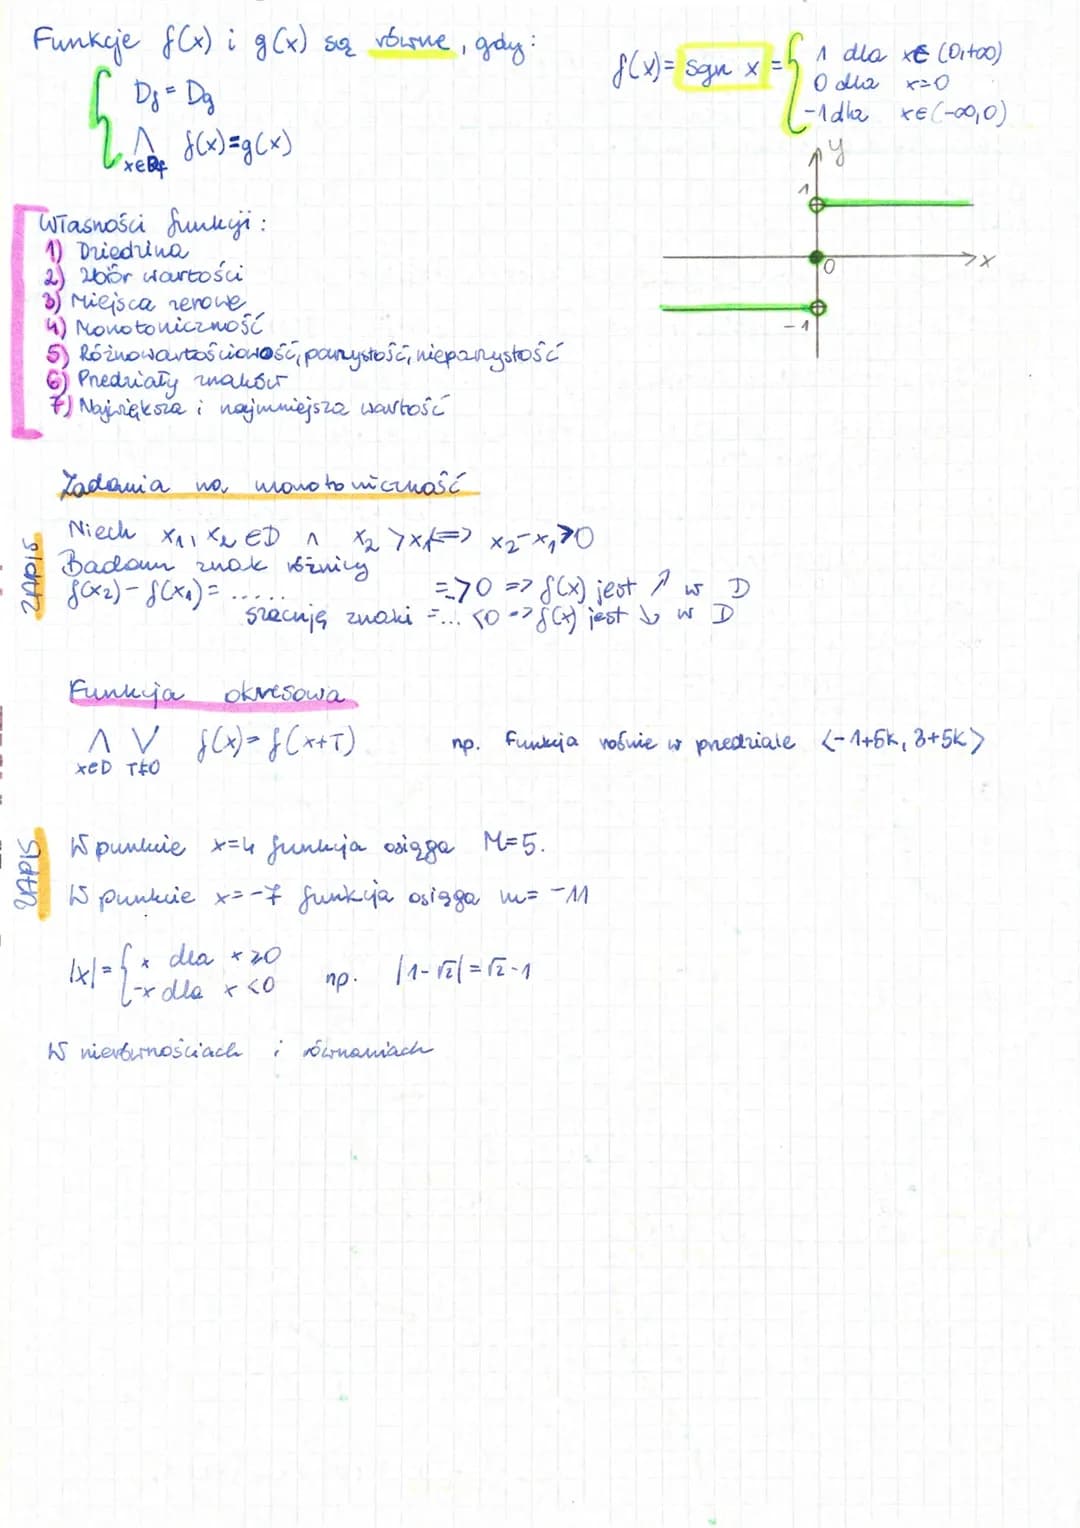 Funkcje f(x) i g(x) są równe, gdy:
D_f = D_g
⋀ f(x)=g(x)
x∈D_f
f(x)= sgn x = { 1 dla x∈(0,+∞)
0 dla x=0
-1 dla x∈(-∞,0)
y
1
0
x
-1
Własności funkcji:
1) Dziedzina
2) Zbiór wartości
3) Miejsca zerowe
4) Monotoniczność
5) Różnowartościowość, parzystość, nieparzystość
6) Przedziały znaków
7) Największa i najmniejsza wartość
Zadania na monotoniczność
ZAPIS
Niech x₁, x₂ ∈D ∧ x₂ >x₁ <=> x₂-x₁>0
Badam znak różnicy
f(x₂)-f(x₁)= ..... =>0 => f(x) jest ↗ w D
szacuję znaki =... <0 => f(x) jest ↘ w D
Funkcja okresowa
⋀ ⋁ f(x)=f(x+T) np. Funkcja rośnie w przedziale <-1+5k, 3+5k>
x∈D T≠0
ZAPIS
W punkcie x=4 funkcja osiąga M=5.
W punkcie x=-7 funkcja osiąga m= -11
|x|= { x dla x≥0
-x dla x<0 np. |1-√2|=√2-1
W nierównościach i równaniach